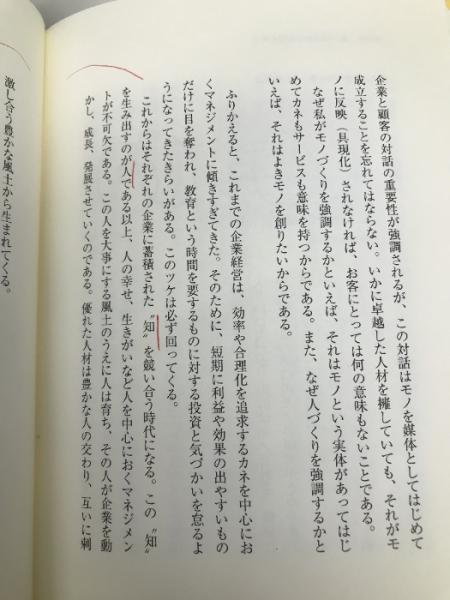 企業と顧客の対話の重要性が強調されるが、この対話はモノを媒体としてはじめて
成立することを忘れてはならない。いかに卓越した人材を擁していても、それがモ
ノに反映（具現化）されなければ、お客にとっては何の意味もないことである。
なぜ私がモノづくりを強調するかといえば、それはモノという実体があってはじ
めてカネもサービスも意味を持つからである。また、なぜ人づくりを強調するかと
いえば、それはよきモノを創りたいからである。
ふりかえると、これまでの企業経営は、効率や合理化を追求するカネを中心にお
くマネジメントに傾きすぎてきた。そのために、短期に利益や効果の出やすいもの
だけに目を奪われ、教育という時間を要するものに対する投資と気づかいを怠るよ
うになってきたきらいがある。このツケは必ず回ってくる。
これからはそれぞれの企業に蓄積された〝知〟を競い合う時代になる。この〝知〟
を生み出すのが人である以上、人の幸せ、生きがいなど人を中心におくマネジメン
トが不可欠である。この人を大事にする風土のうえに人は育ち、その人が企業を動
かし、成長、発展させていくのである。優れた人材は豊かな人の交わり、互いに刺
激し合う豊かな風土から生まれてくる。